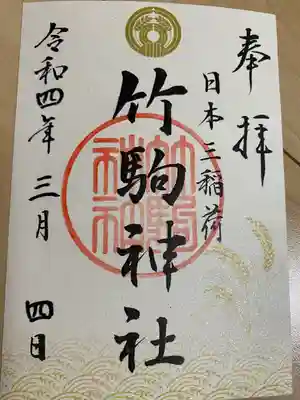 奉拝
日本三稲荷
竹駒神社
令和四年三月四日
竹駒神社